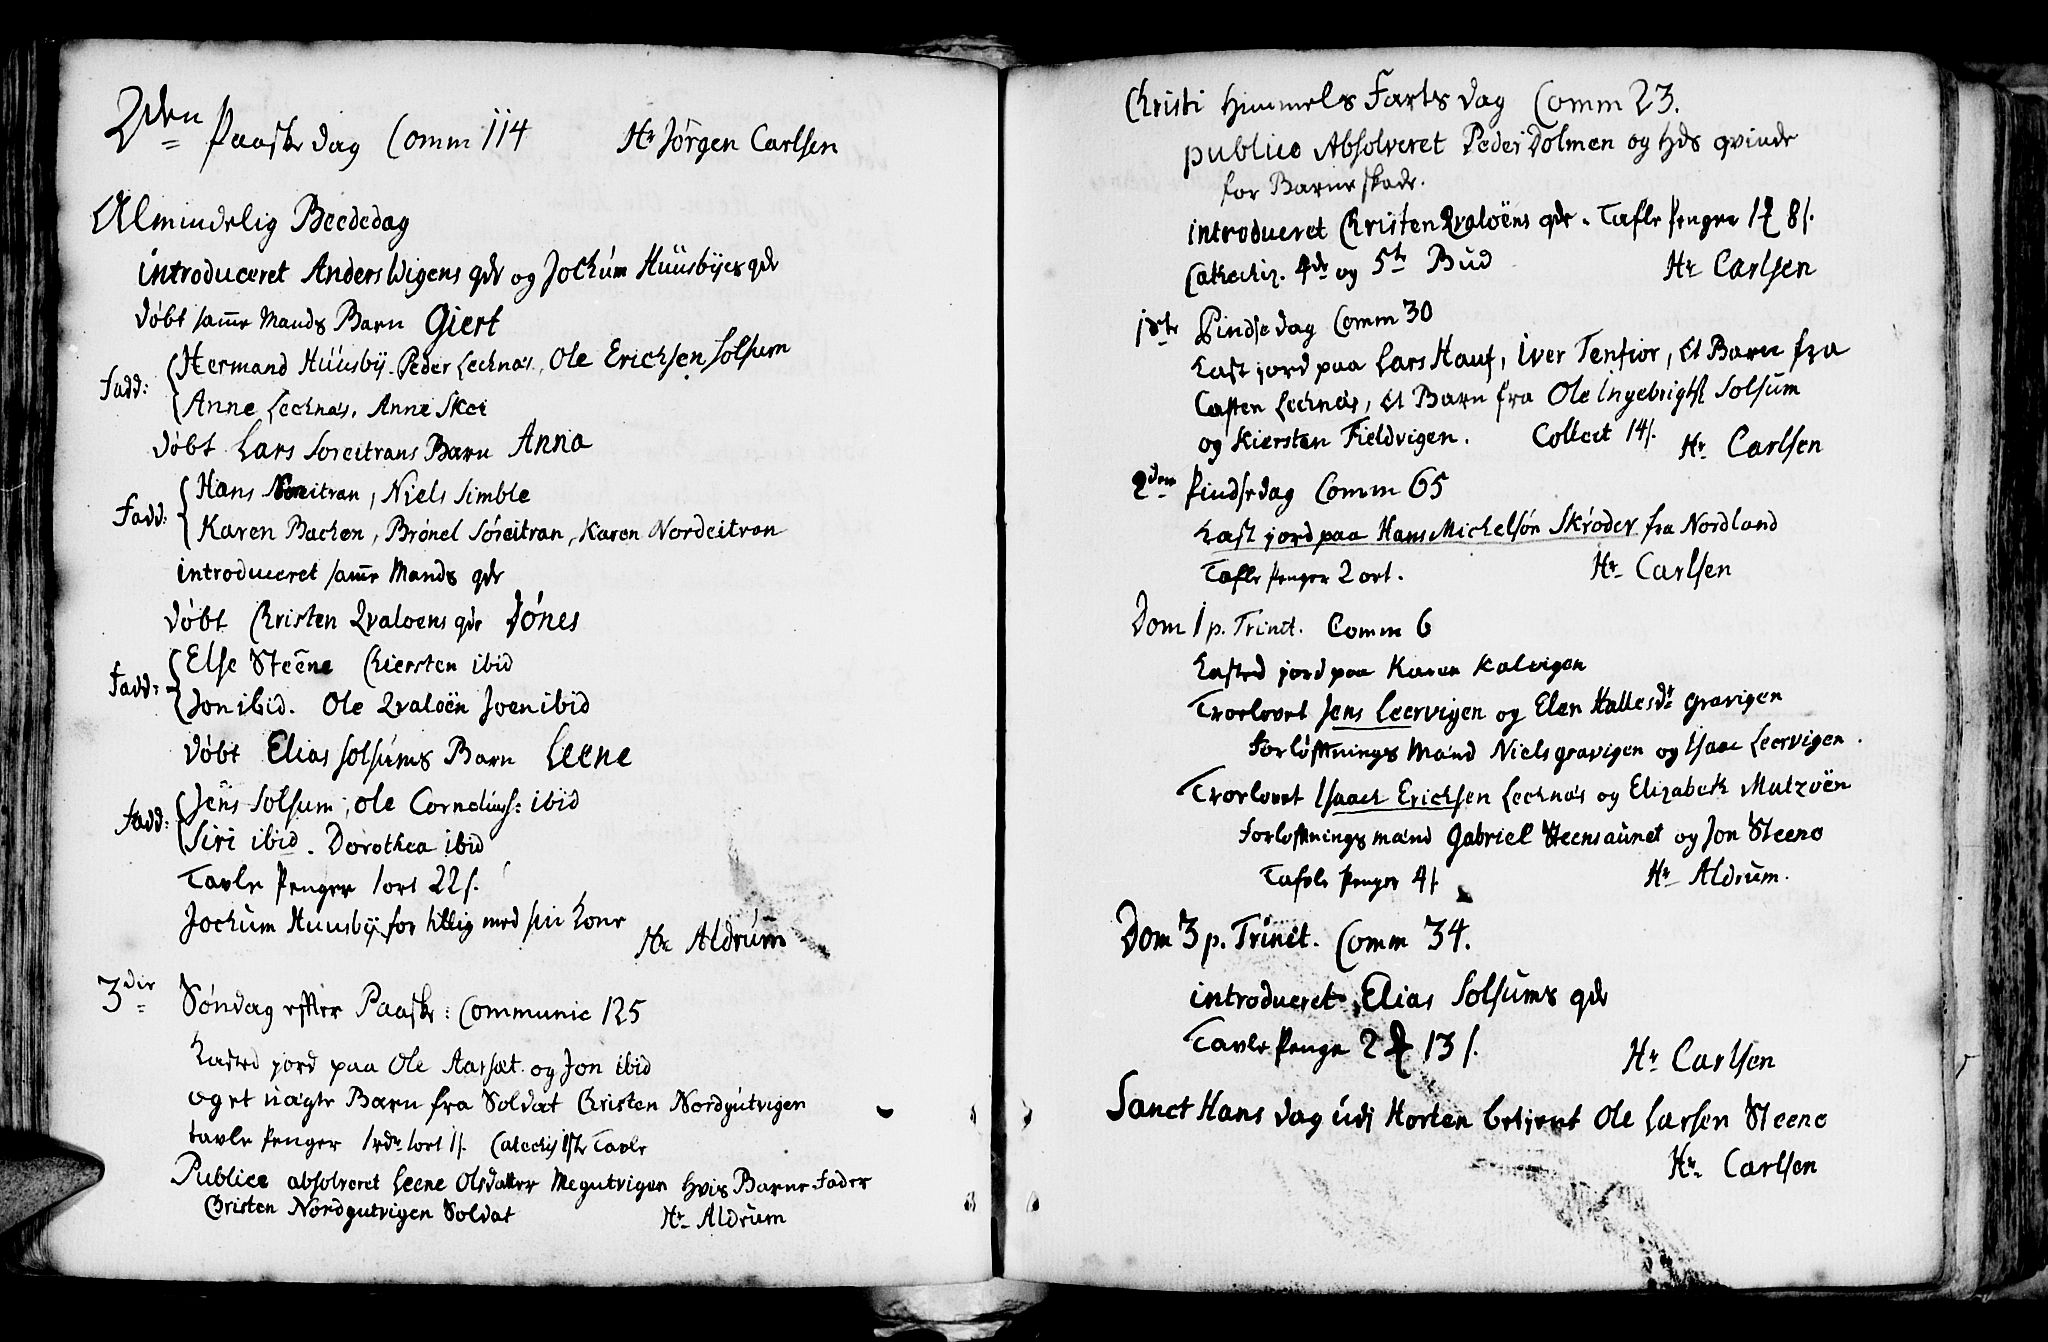 2den Paaske dag Comm 114 Hr Jörgen Carlsen
Almindelig Beededag
introduceret Anders Wigens qdr og Jochum Huusbyes qdr
Döbt samme Mands Barn Giert
Fadd: Hermand Huusby. Peder Lechnäs, Ole Erichsen Solsum
Anne Lechnäs, Anne Skei
Döbt Lars Söreitrans Barn Anna
Fadd: Hans Noreitran, Niels Simble
Karen Bachen, Brönel Söreitran, Karen Nordeitran
introduceret samme Mands qdr
Döbt Christen Qvaloens qdr Dönes
Fadd: Else Steene Chiersten ibid
Jon ibid. Ole Qvaloën Joen ibid
Döbt Elias Solsums Barn Leene
Fadd: Jens Solsum, Ole Corneliuss: ibid
Siri ibid. Dorothea ibid
Tavle Penger 1 ort 22 s.
Jochum Huusby for tillig med sin Kone
Hr Aldrum
3die Söndag effter Paaske: Communic 125
Kasted jord paa Ole Aarsæt og Jon ibid
og et uägte Barn fra Soldat Christen Nordgutvigen
tavle Penger 1 rdr 1 ort 1 s. Catechis 1ste Tavle
Publice absolveret Leene Olsdatter Megutvigen hvis Barne Fader
Christen Nordgutvigen Soldat Hr Aldrum
Christi Himmels Farts dag Comm 23.
publice Absolveret Peder Dolmen og hds qvinde
for Barne skade.
introduceret Christen Qvaloëns qdr. Tafle Penger 1 ₰ 8 s.
Catechiz. 4de og 5te Bud Hr Carlsen
1ste Pindse dag Comm 30
Kast jord paa Lars Hauf, Iver Tenfior, Et Barn fra
Casten Lechnäs, Et Barn fra Ole Ingebrigtst Solsum
og Kiersten Fieldvigen. Collect 14 s. Hr Carlsen
2den Pindse dag Comm 65
Kast jord paa Hans Michelsön Skröder fra Nordland
Tafle Penger 2 ort. Hr Carlsen
Dom 1 p. Trinit. Comm 6
Kasted jord paa Karen Kalvigen
Troelovet Jens Leervigen og Elen Hallesdr Gravigen
Forlöftnings Mänd Niels gravigen og Isaac Leervigen.
Troelovet Isaach Erichsen Lechnäs og Elizabeth Mutzoën
Forloftnings mänd Gabriel Steensaunet og Jon Steene
Tafvle Penger 4 s Hr Aldrum.
Dom 3 p. Trinit. Comm 34.
introduceret Elias Solsums qdr
Tavle Penge 2 ₰ 13 s. Hr Carlsen
Sanct Hans dag udj Horten betjent Ole Larsen Steene
Hr Carlsen